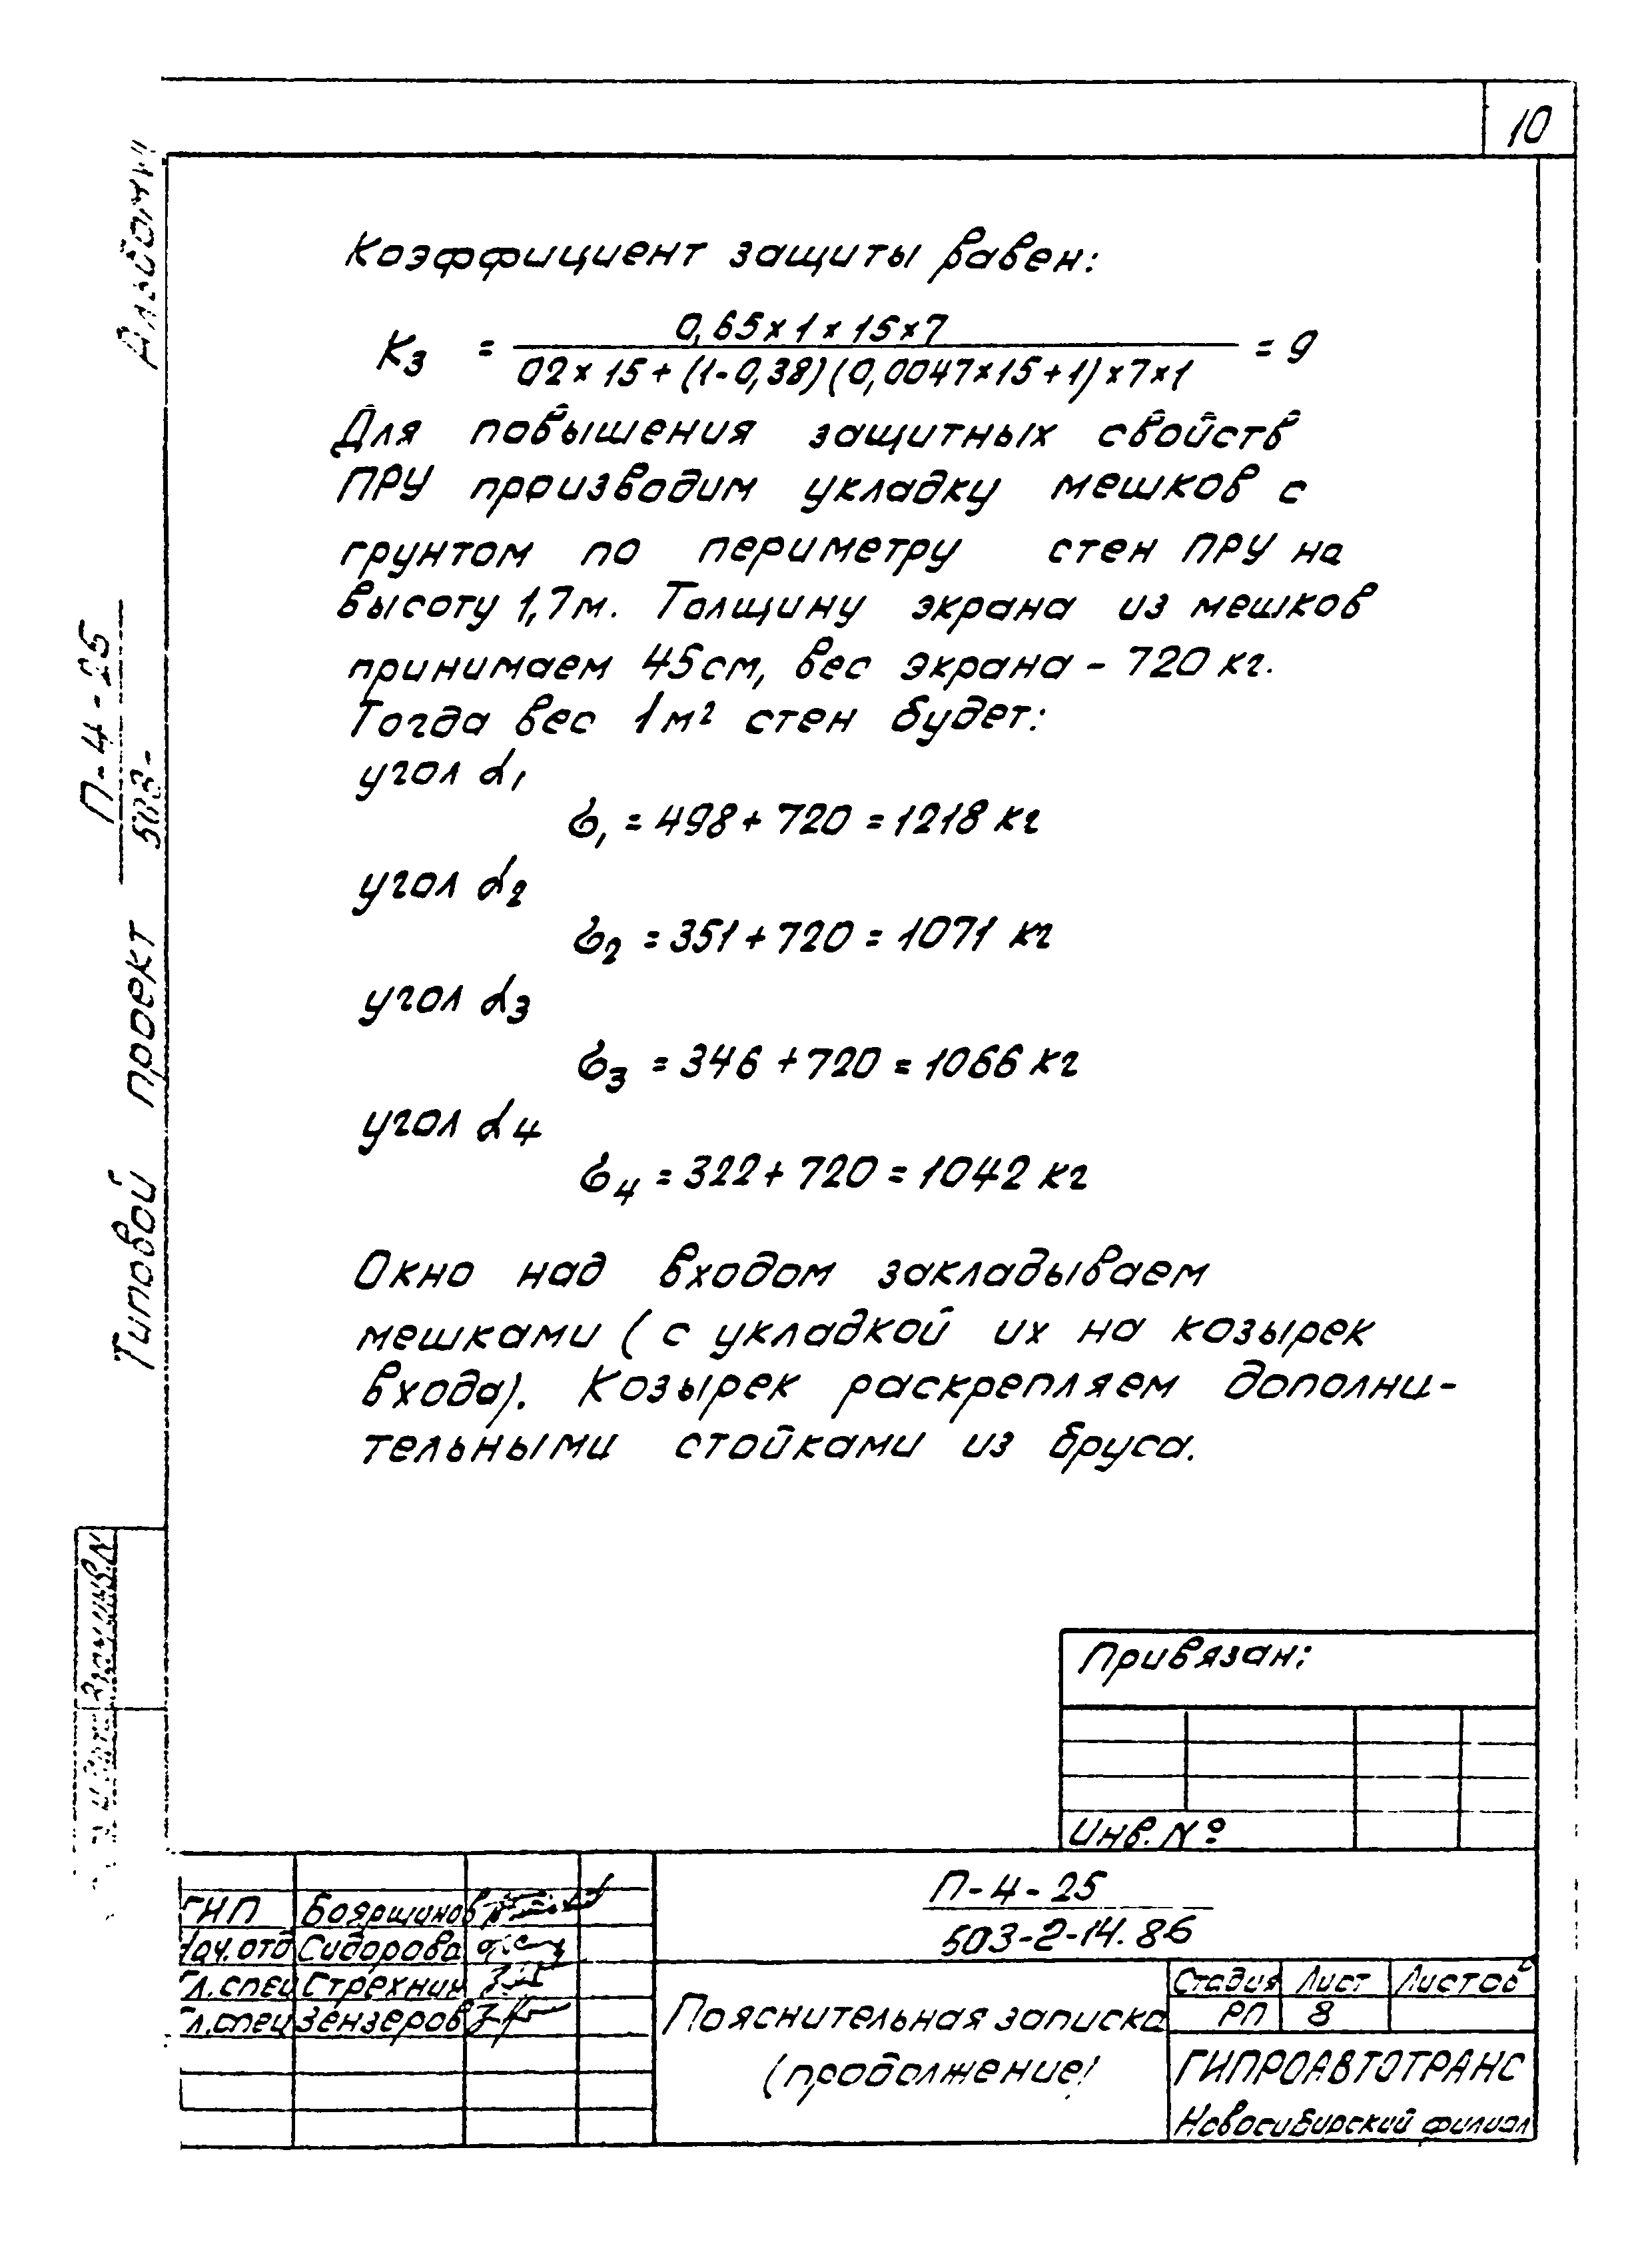 10
Коэффициент защиты равен:
K3 = 0,65×1×15×7 / 02×15+(1-0,38)(0,0047×15+1)×7×1 = 9
Для повышения защитных свойств
ПРУ производим укладку мешков с
грунтом по периметру стен ПРУ на
высоту 1,7м. Толщину экрана из мешков
принимаем 45см, вес экрана - 720 кг.
Тогда вес 1м² стен будет:
угол α1
σ1 = 498+720 = 1218 кг
угол α2
σ2 = 351+720 = 1071 кг
угол α3
σ3 = 346+720 = 1066 кг
угол α4
σ4 = 322+720 = 1042 кг
Окно над входом закладываем
мешками (с укладкой их на козырек
входа). Козырек раскрепляем дополни-
тельными стойками из бруса.
Альбом
Типовой проект П-4-25
503-
Взам.инв.N
Привязан:
Инв. №
ГИП Бояршинов
Нач.отд Сидорова
Гл.спец Стрехнин
Гл.спец Зензеров
П-4-25
503-2-14.86
Пояснительная записка
(продолжение)
Стадия Лист Листов
РП 8
ГИПРОАВТОТРАНС
Новосибирский филиал